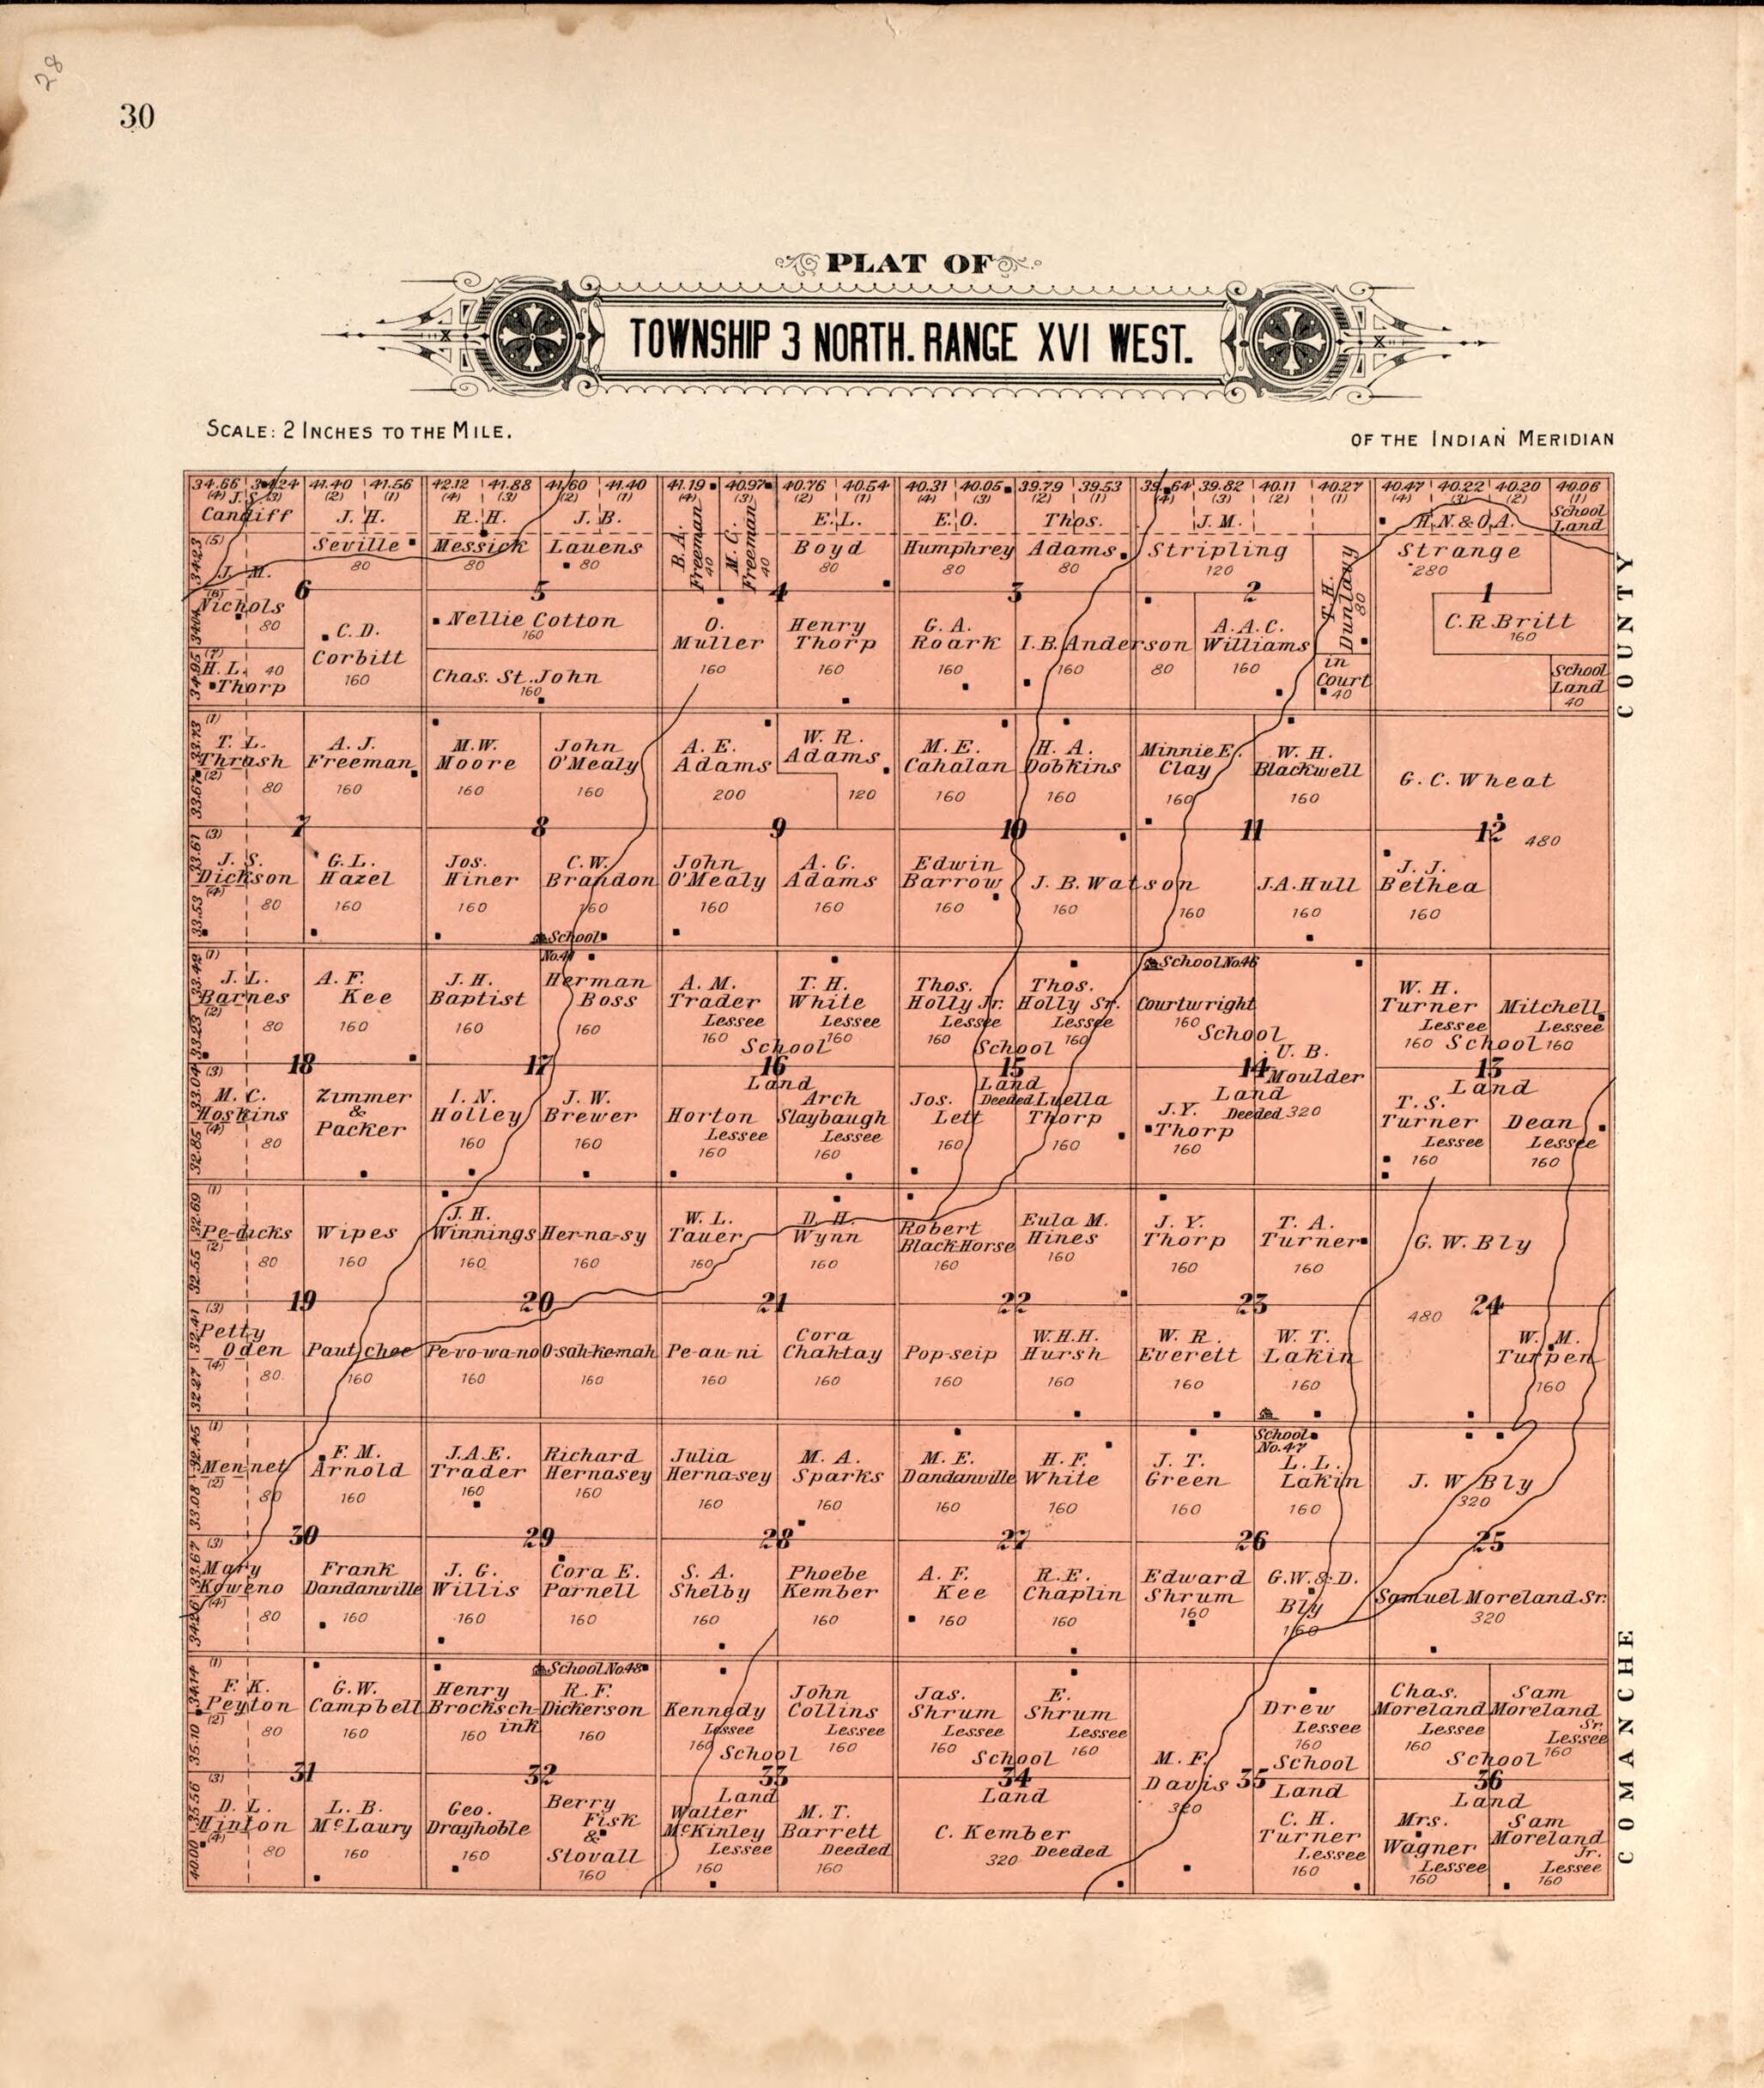 28
30
PLAT OF
TOWNSHIP 3 NORTH. RANGE XVI WEST.
SCALE: 2 INCHES TO THE MILE.
OF THE INDIAN MERIDIAN
34.66 34.24 41.40 41.56 42.12 41.88 41.60 41.40 41.19 40.97 40.76 40.54 40.31 40.05 39.79 39.53 39.64 39.82 40.11 40.27 40.47 40.22 40.20 40.06
(4) (3) (2) (1) (4) (3) (2) (1) (4) (3) (2) (1) (4) (3) (2) (1) (4) (3) (2) (1) (4) (3) (2) (1)
J. S.
Candiff
J. H.
Seville
80
R. H.
Messick
80
J. B.
Lavens
80
B. A.
Freeman
40
M. C.
Freeman
40
E. L.
Boyd
80
E. O.
Humphrey
80
Thos.
Adams
80
J. M.
Stripling
120
T. H.
Dunlavy
80
H. N. & O. A.
Strange
280
School
Land
(5)
J. M.
Nichols
80
6
5
4
3
2
1
C. D.
Corbitt
160
Nellie Cotton
160
O.
Muller
160
Henry
Thorp
160
G. A.
Roark
160
I. B. Anderson
160
80
A. A. C.
Williams
160
in
Court
40
C. R. Britt
160
H. L.
Thorp
40
Chas. St. John
160
School
Land
40
T. L.
Thrash
80
A. J.
Freeman
160
M. W.
Moore
160
John
O'Mealy
160
A. E.
Adams
200
W. R.
Adams
120
M. E.
Cahalan
160
H. A.
Dobkins
160
Minnie E.
Clay
160
W. H.
Blackwell
160
G. C. Wheat
480
7
8
9
10
11
12
J. S.
Dickson
80
G. L.
Hazel
160
Jos.
Hiner
160
C. W.
Brandon
160
John
O'Mealy
160
A. G.
Adams
160
Edwin
Barrow
160
J. B. Watson
160
160
J. A. Hull
160
J. J.
Bethea
160
School
No. 41
School No 46
J. L.
Barnes
80
A. F.
Kee
160
J. H.
Baptist
160
Herman
Boss
160
A. M.
Trader
Lessee
160
T. H.
White
Lessee
160
Thos.
Holly Jr.
Lessee
160
Thos.
Holly Sr.
Lessee
160
Courtwright
160
W. H.
Turner
Lessee
160
Mitchell
Lessee
160
School
School
School
School
18
17
16
15
14
13
Land
Land
Land
Land
M. C.
Hoskins
80
Zimmer
&
Packer
I. N.
Holley
160
J. W.
Brewer
160
Horton
Lessee
160
Arch
Slaybaugh
Lessee
160
Jos.
Lett
160
Deeded
Luella
Thorp
160
J. Y.
Thorp
160
U. B.
Moulder
Deeded 320
T. S.
Turner
Lessee
160
Dean
Lessee
160
Pe-dicks
80
Wipes
160
J. H.
Winnings
160
Her-na-sy
160
W. L.
Tauer
160
D. H.
Wynn
160
Robert
Black Horse
160
Eula M.
Hines
160
J. Y.
Thorp
160
T. A.
Turner
160
G. W. Bly
480
19
20
21
22
23
24
Petty
Oden
80
Paut chee
160
Pe-vo-wa-no
160
O-sah-kemah
160
Pe-au-ni
160
Cora
Chahtay
160
Pop-seip
160
W. H. H.
Hursh
160
W. R.
Everett
160
W. T.
Lakin
160
W. M.
Turpen
160
School
No. 47
Mennet
80
F. M.
Arnold
160
J. A. E.
Trader
160
Richard
Hernasey
160
Julia
Hernasey
160
M. A.
Sparks
160
M. E.
Dandanville
160
H. F.
White
160
J. T.
Green
160
L. L.
Lakin
160
J. W. Bly
320
30
29
28
27
26
25
Mary
Koweno
80
Frank
Dandanville
160
J. G.
Willis
160
Cora E.
Parnell
160
S. A.
Shelby
160
Phoebe
Kember
160
A. F.
Kee
160
R. E.
Chaplin
160
Edward
Shrum
160
G. W. & D.
Bly
160
Samuel Moreland Sr.
320
School No 48
F. K.
Peyton
80
G. W.
Campbell
160
Henry
Brocksch-
ink
160
R. F.
Dickerson
160
Kennedy
Lessee
160
John
Collins
Lessee
160
Jas.
Shrum
Lessee
160
E.
Shrum
Lessee
160
M. F.
Davis
320
Drew
Lessee
160
Chas.
Moreland
Lessee
160
Sam
Moreland
Sr.
Lessee
160
School
School
School
School
31
32
33
34
35
36
Land
Land
Land
Land
D. L.
Hinton
80
L. B.
McLaury
160
Geo.
Drayhoble
160
Berry
Fisk
&
Stovall
160
Walter
McKinley
Lessee
160
M. T.
Barrett
Deeded
160
C. Kember
320 Deeded
C. H.
Turner
Lessee
160
Mrs.
Wagner
Lessee
160
Sam
Moreland
Jr.
Lessee
160
COMANCHE COUNTY